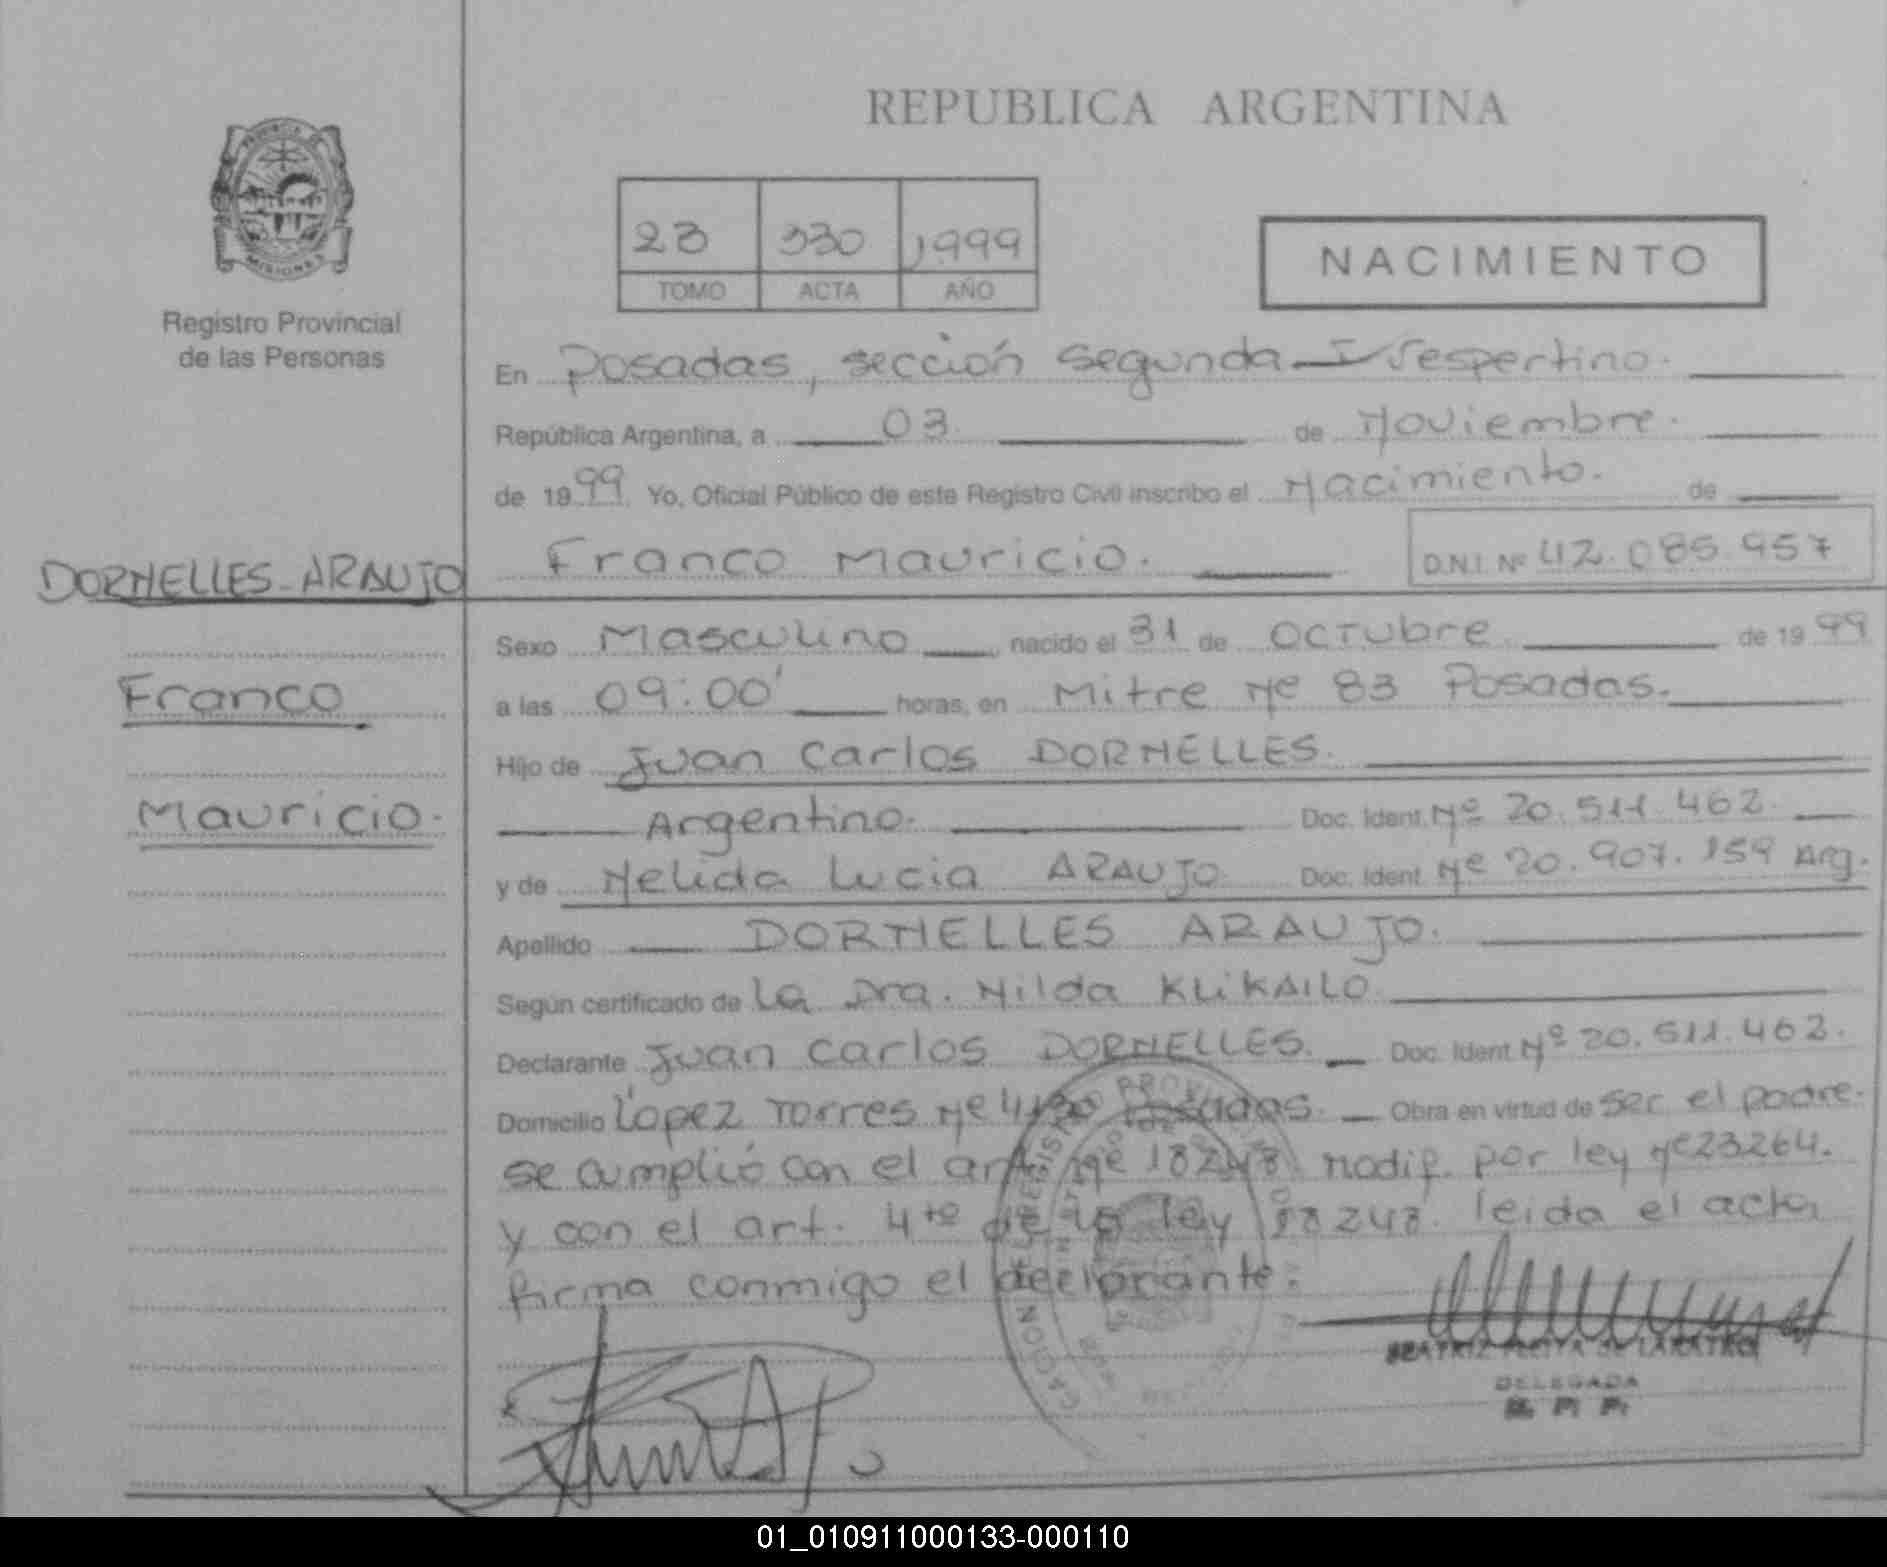 REPUBLICA ARGENTINA
PROVINCIA
MISIONES
Registro Provincial
de las Personas
23 330 1999
TOMO ACTA AÑO
NACIMIENTO
En Posadas, sección segunda I Vespertino.
República Argentina, a 03 de Noviembre.
de 1999 Yo, Oficial Público de este Registro Civil inscribo el Nacimiento. de
Franco Mauricio. D.N.I. Nº 42.085.957
DORNELLES ARAUJO
Franco
Mauricio.
Sexo Masculino nacido el 31 de octubre de 1999
a las 09:00' horas, en Mitre Nº 83 Posadas.
Hijo de Juan Carlos DORNELLES.
Argentino. Doc. Ident. Nº 20.511.462.
y de Nelida Lucia ARAUJO Doc. Ident. Nº 20.907.159 Arg.
Apellido DORNELLES ARAUJO.
Según certificado de La Dra. Nilda KLIKAILO
Declarante Juan Carlos DORNELLES. Doc. Ident. Nº 20.511.462.
Domicilio López Torres Nº Posadas. Obra en virtud de ser el padre.
se cumplió con el art. Nº 18248 modif. por ley Nº 23264.
y con el art. 4to de la ley 18248. leida el acta
firma conmigo el declorante.
BEATRIZ DE
DELEGADA
01_010911000133-000110